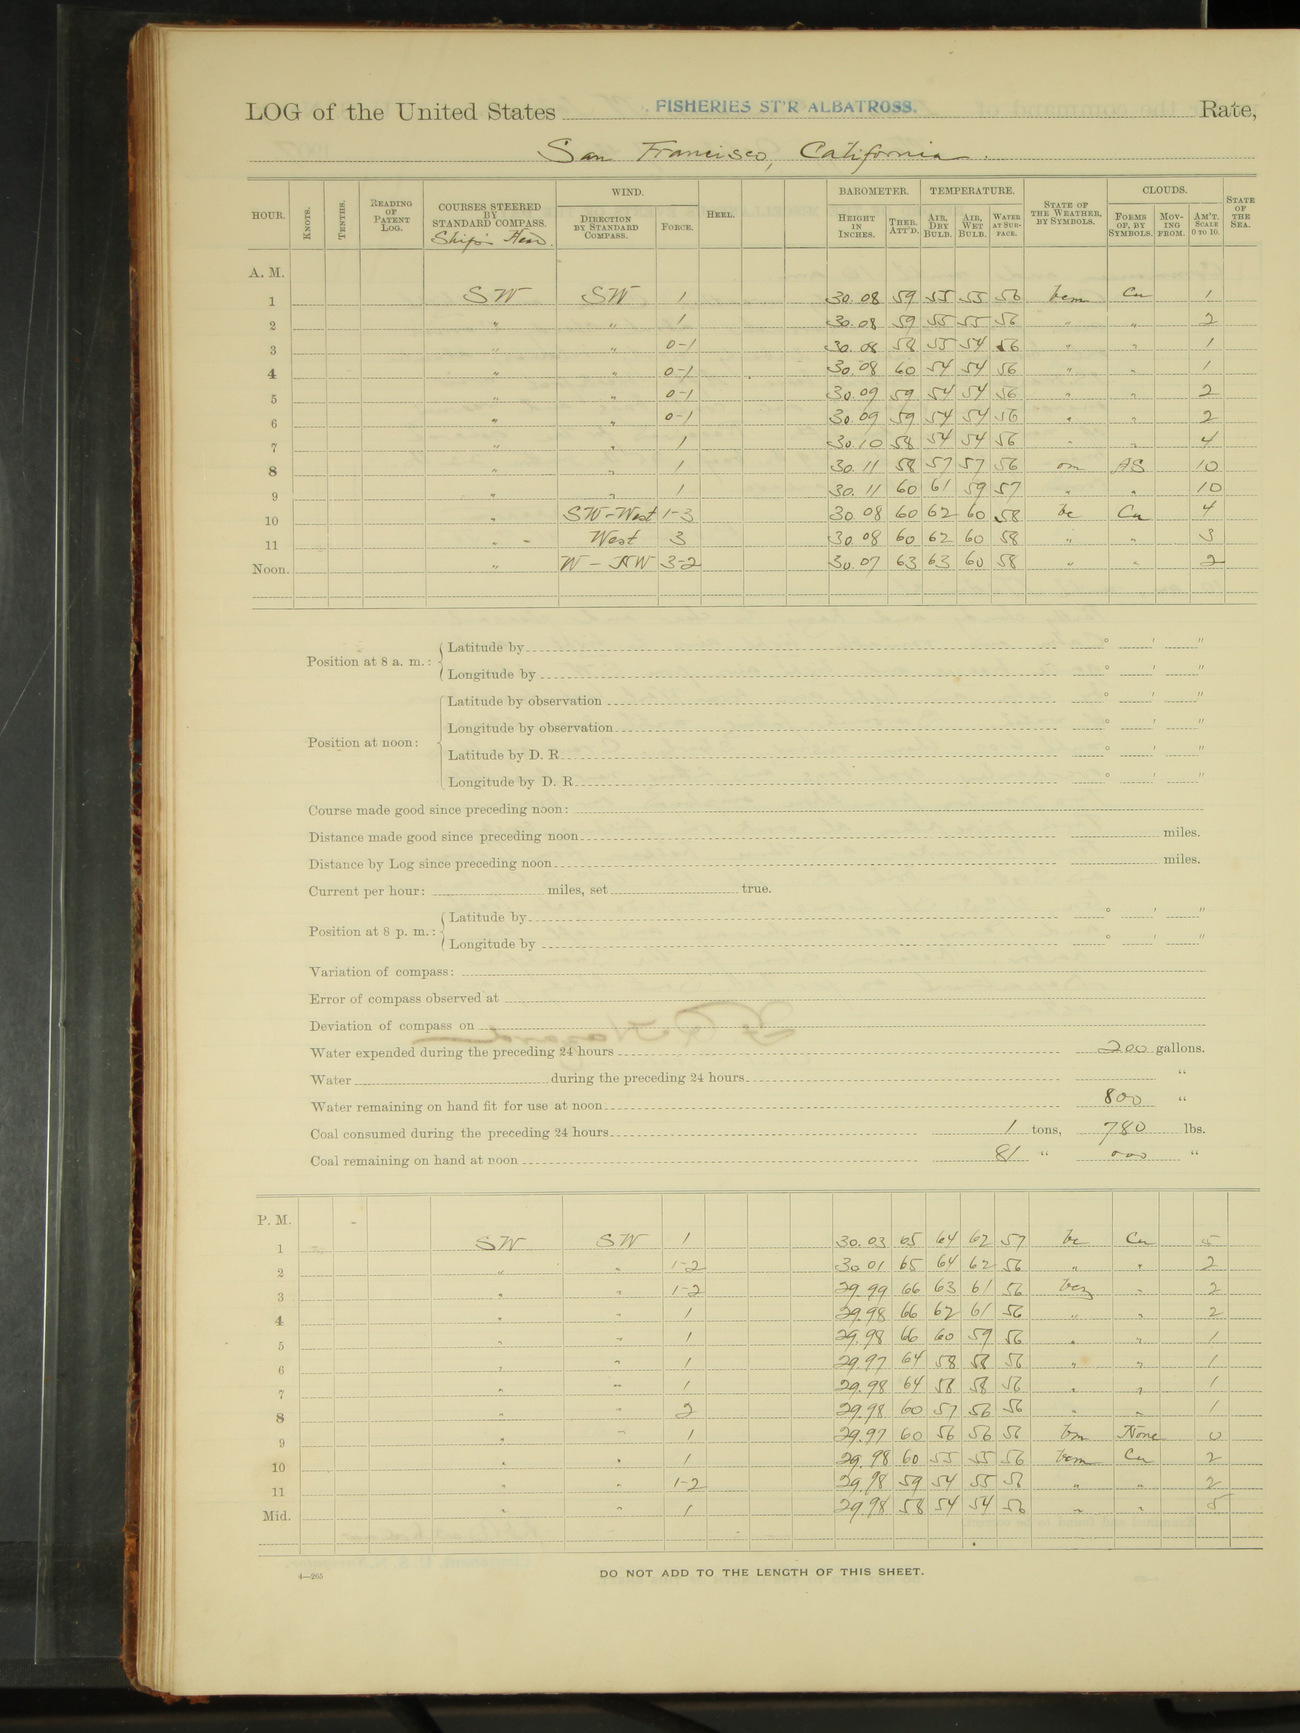 LOG of the United States FISHERIES ST'R ALBATROSS. Rate,
San Francisco, California.
HOUR. KNOTS. TENTHS. READING OF PATENT LOG. COURSES STEERED BY STANDARD COMPASS. Ship's Head WIND. DIRECTION BY STANDARD COMPASS. FORCE. HEEL. BAROMETER. HEIGHT IN INCHES. THER. ATT'D. TEMPERATURE. AIR, DRY BULB. AIR, WET BULB. WATER AT SURFACE. STATE OF THE WEATHER, BY SYMBOLS. CLOUDS. FORMS OF, BY SYMBOLS. MOVING FROM. AM'T. SCALE 0 TO 10. STATE OF THE SEA.
A. M.
1 SW SW 1 30.08 59 55 55 56 bcm Cu 1
2 " " 1 30.08 59 55 55 56 " " 2
3 " " 0-1 30.08 58 55 54 56 " " 1
4 " " 0-1 30.08 60 54 54 56 " " 1
5 " " 0-1 30.09 59 54 54 56 " " 2
6 " " 0-1 30.09 59 54 54 56 " " 2
7 " " 1 30.10 58 54 54 56 " " 4
8 " " 1 30.11 58 57 57 56 om AS 10
9 " " 1 30.11 60 61 59 57 " " 10
10 " SW-West 1-3 30.08 60 62 60 58 bc Cu 4
11 " West 3 30.08 60 62 60 58 " " 3
Noon. " W-NW 3-2 30.07 63 63 60 58 " " 2
Position at 8 a. m.: Latitude by ° ' "
Longitude by ° ' "
Position at noon: Latitude by observation ° ' "
Longitude by observation ° ' "
Latitude by D. R. ° ' "
Longitude by D. R. ° ' "
Course made good since preceding noon:
Distance made good since preceding noon miles.
Distance by Log since preceding noon miles.
Current per hour: miles, set true.
Position at 8 p. m.: Latitude by ° ' "
Longitude by ° ' "
Variation of compass:
Error of compass observed at
Deviation of compass on
Water expended during the preceding 24 hours 200 gallons.
Water during the preceding 24 hours "
Water remaining on hand fit for use at noon 800 "
Coal consumed during the preceding 24 hours 1 tons, 780 lbs.
Coal remaining on hand at noon 81 " 000 "
P. M.
1 SW SW 1 30.03 65 64 62 57 bc Cu 5
2 " " 1-2 30.01 65 64 62 56 " " 2
3 " " 1-2 29.99 66 63 61 56 bcz " 2
4 " " 1 29.98 66 62 61 56 " " 2
5 " " 1 29.98 66 60 59 56 " " 1
6 " " 1 29.97 64 58 58 56 " " 1
7 " " 1 29.98 64 58 58 56 " " 1
8 " " 2 29.98 60 57 56 56 " " 1
9 " " 1 29.97 60 56 56 56 bm None 0
10 " " 1 29.98 60 55 55 56 bcm Cu 2
11 " " 1-2 29.98 59 54 55 56 " " 2
Mid. " " 1 29.98 58 54 54 56 " " 5
4—265 DO NOT ADD TO THE LENGTH OF THIS SHEET.